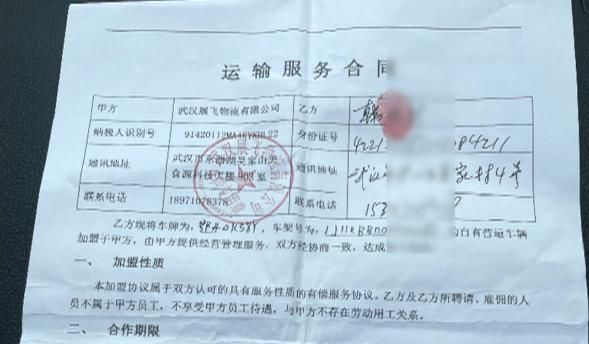 运输服务合同
甲方 武汉展飞物流有限公司 乙方 韩
纳税人识别号 91420112MA4KYKHL22 身份证号 4221 84211
通讯地址 武汉市东西湖吴家山关 通讯地址 武汉 家村4号
食源科技大楼 室
联系电话 18971078378 联系电话 153
乙方现将车牌为, 车架号为, 的自有营运车辆
加盟于甲方, 由甲方提供经营管理服务, 双方经协商一致, 达成
一、 加盟性质
本加盟协议属于双方认可的具有服务性质的有偿服务协议。乙方及乙方所聘请、雇佣的人
员不属于甲方员工, 不享受甲方员工待遇, 与甲方不存在劳动用工关系。
二、 合作期限